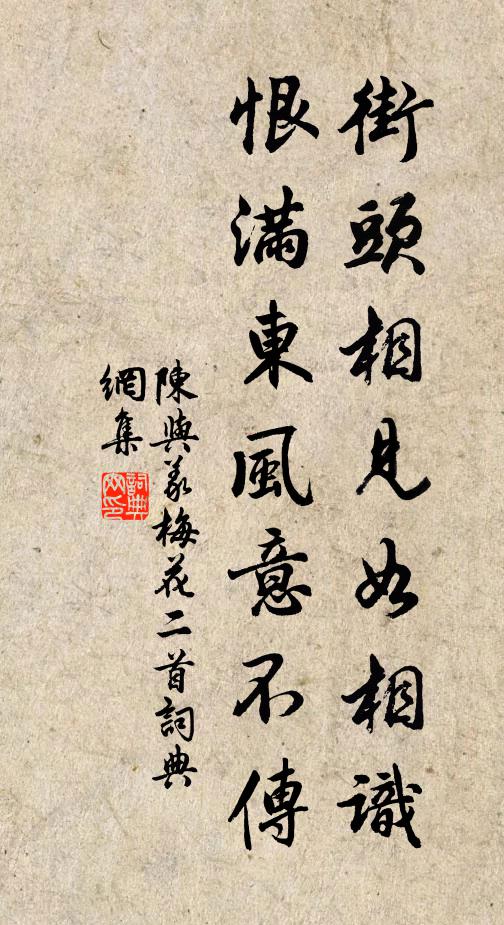 街頭相見如相識
恨滿東風意不傳
陳與義梅花二首詞典
網集
詞典
网印